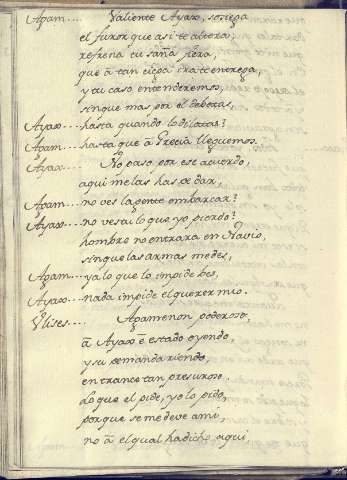 Agam.... Valiente Ayax, sosiega
el furor que asi te altera,
refrena tu saña fiera,
que ā tan ciega ira te entrega,
y tu caso entenderemos,
sin que mas por el debatas,
Ayax.... hasta quando lo dilatas?
Agam.... hasta que ā Grecia lleguemos.
Ayax.... No paso por ese acuerdo,
aqui me las has de dar,
Agam.... no ves la gente embarcar?
Ayax.... no ves tu lo que yo pierdo?
hombre no entrara en Navio,
sin que las armas me des,
Agam.... ya lo que lo impide bes,
Ayax.... nada impide el querer mio.
Vlises.... Agamenon poderoso,
ā Ayax ē estado oyendo,
y su demanda riendo,
en trance tan presuroso.
Lo que el pide, yo lo pido,
porque se me deve ami,
no ā el qual ha dicho aqui,